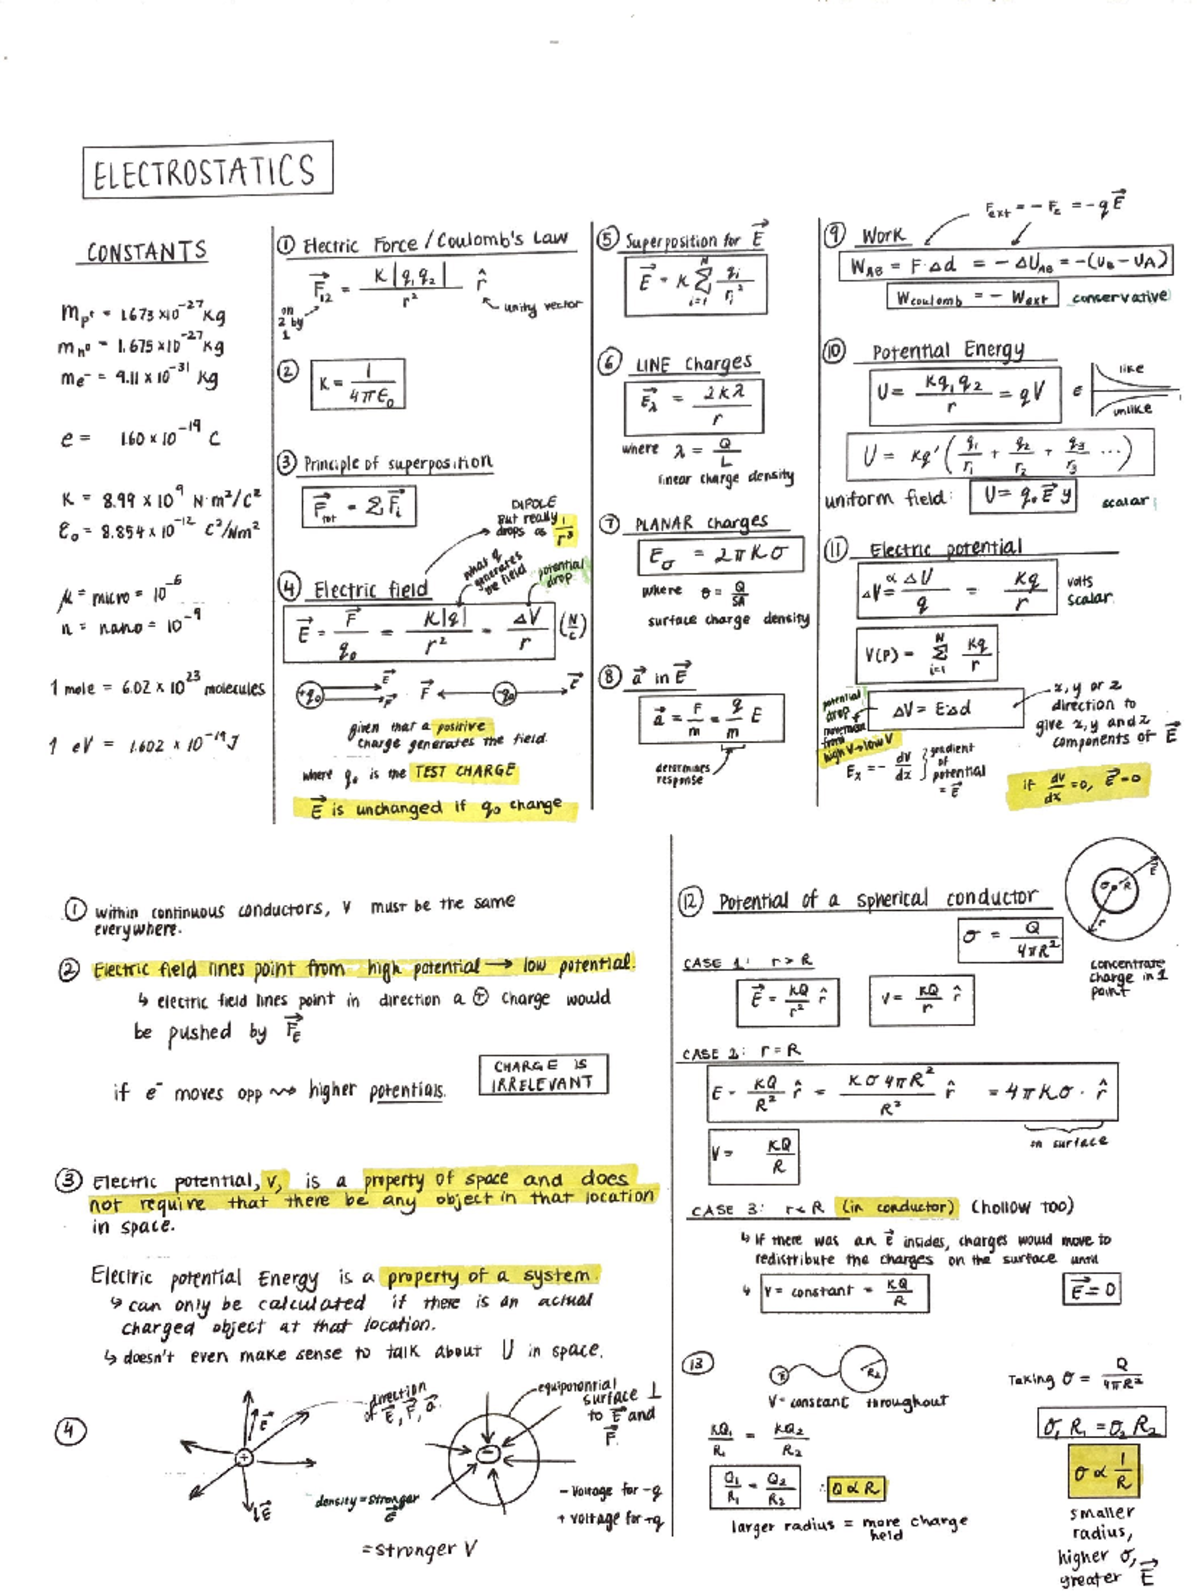 ELECTROSTATICS
CONSTANTS
mp+ = 1.673 x10^-27 kg
mn0 = 1.675 x10^-27 kg
me- = 9.11 x 10^-31 kg
e = 1.60 x 10^-19 C
K = 8.99 x 10^9 N·m²/C²
ε0 = 8.854 x 10^-12 C²/Nm²
μ = micro = 10^-6
n = nano = 10^-9
1 mole = 6.02 x 10^23 molecules
1 eV = 1.602 x 10^-19 J
① Electric Force / Coulomb's Law
F⃗12 = K|q1q2| / r² r̂
on 2 by 1
unity vector
② K = 1 / 4πε0
③ Principle of superposition
F⃗tot = Σ F⃗i
DIPOLE
But really drops as 1/r³
what q generates the field
potential drop
④ Electric field
E⃗ = F⃗/q0 = K|q|/r² = ΔV/r (N/C)
+q0 E⃗ F⃗ F⃗ -q0 E⃗
given that a positive
charge generates the field.
where q0 is the TEST CHARGE
E⃗ is unchanged if q0 change
⑤ Superposition for E⃗
E⃗ = K Σ(i=1, N) qi/ri²
⑥ LINE Charges
E⃗λ = 2kλ / r
where λ = Q/L
linear charge density
⑦ PLANAR charges
Eσ = 2πKσ
where σ = Q/SA
surface charge density
⑧ a⃗ in E⃗
a⃗ = F/m = q/m E
determines response
⑨ Work
Fext = - FE = -qE⃗
WAB = F·Δd = -ΔUAB = -(UB - UA)
Wcoulomb = - Wext conservative
⑩ Potential Energy
U = Kq1q2 / r = qV
E like
unlike
U = Kq' (q1/r1 + q2/r2 + q3/r3 ...)
uniform field: U = q0 E⃗ y scalar
⑪ Electric potential
ΔV ∝ = ΔU/q = Kq/r volts
scalar
V(P) = Σ(i=1, N) Kq/r
potential drop
movement from
high V → low V
ΔV = EΔd
x, y or z
direction to
give x, y and z
components of E⃗
Ex = - dV/dx } gradient of potential = E⃗
if dV/dx = 0, E⃗ = 0
① within continuous conductors, V must be the same
everywhere.
② Electric field lines point from high potential → low potential.
↳ electric field lines point in direction a ⊕ charge would
be pushed by F⃗E
if e- moves opp ⇝ higher potentials.
CHARGE IS
IRRELEVANT
③ Electric potential, V, is a property of space and does
not require that there be any object in that location
in space.
Electric potential Energy is a property of a system.
↳ can only be calculated if there is an actual
charged object at that location.
↳ doesn't even make sense to talk about U in space.
④
+ E⃗ E⃗
direction of E⃗, F⃗, a⃗.
density = stronger E⃗
= stronger V
equipotential
surface ⊥
to E⃗ and
F⃗.
- voltage for -q
+ voltage for +q
⑫ Potential of a spherical conductor
σ = Q / 4πR²
R E⃗ r
concentrate
charge in 1
point
CASE 1: r > R
E⃗ = KQ/r² r̂ V = KQ/r r̂
CASE 2: r = R
E = KQ/R² r̂ = Kσ4πR²/R² r̂ = 4πKσ · r̂
on surface
V = KQ/R
CASE 3: r < R (in conductor) (hollow too)
↳ If there was an E⃗ insides, charges would move to
redistribute the charges on the surface until
↳ V = constant = KQ/R E⃗ = 0
⑬
R R2
V = constant throughout
KQ1/R1 = KQ2/R2
Q1/R1 = Q2/R2 ∴ Q ∝ R
larger radius = more charge
held
Taking σ = Q/4πR²
σ1R1 = σ2R2
σ ∝ 1/R
smaller
radius,
higher σ,
greater E⃗